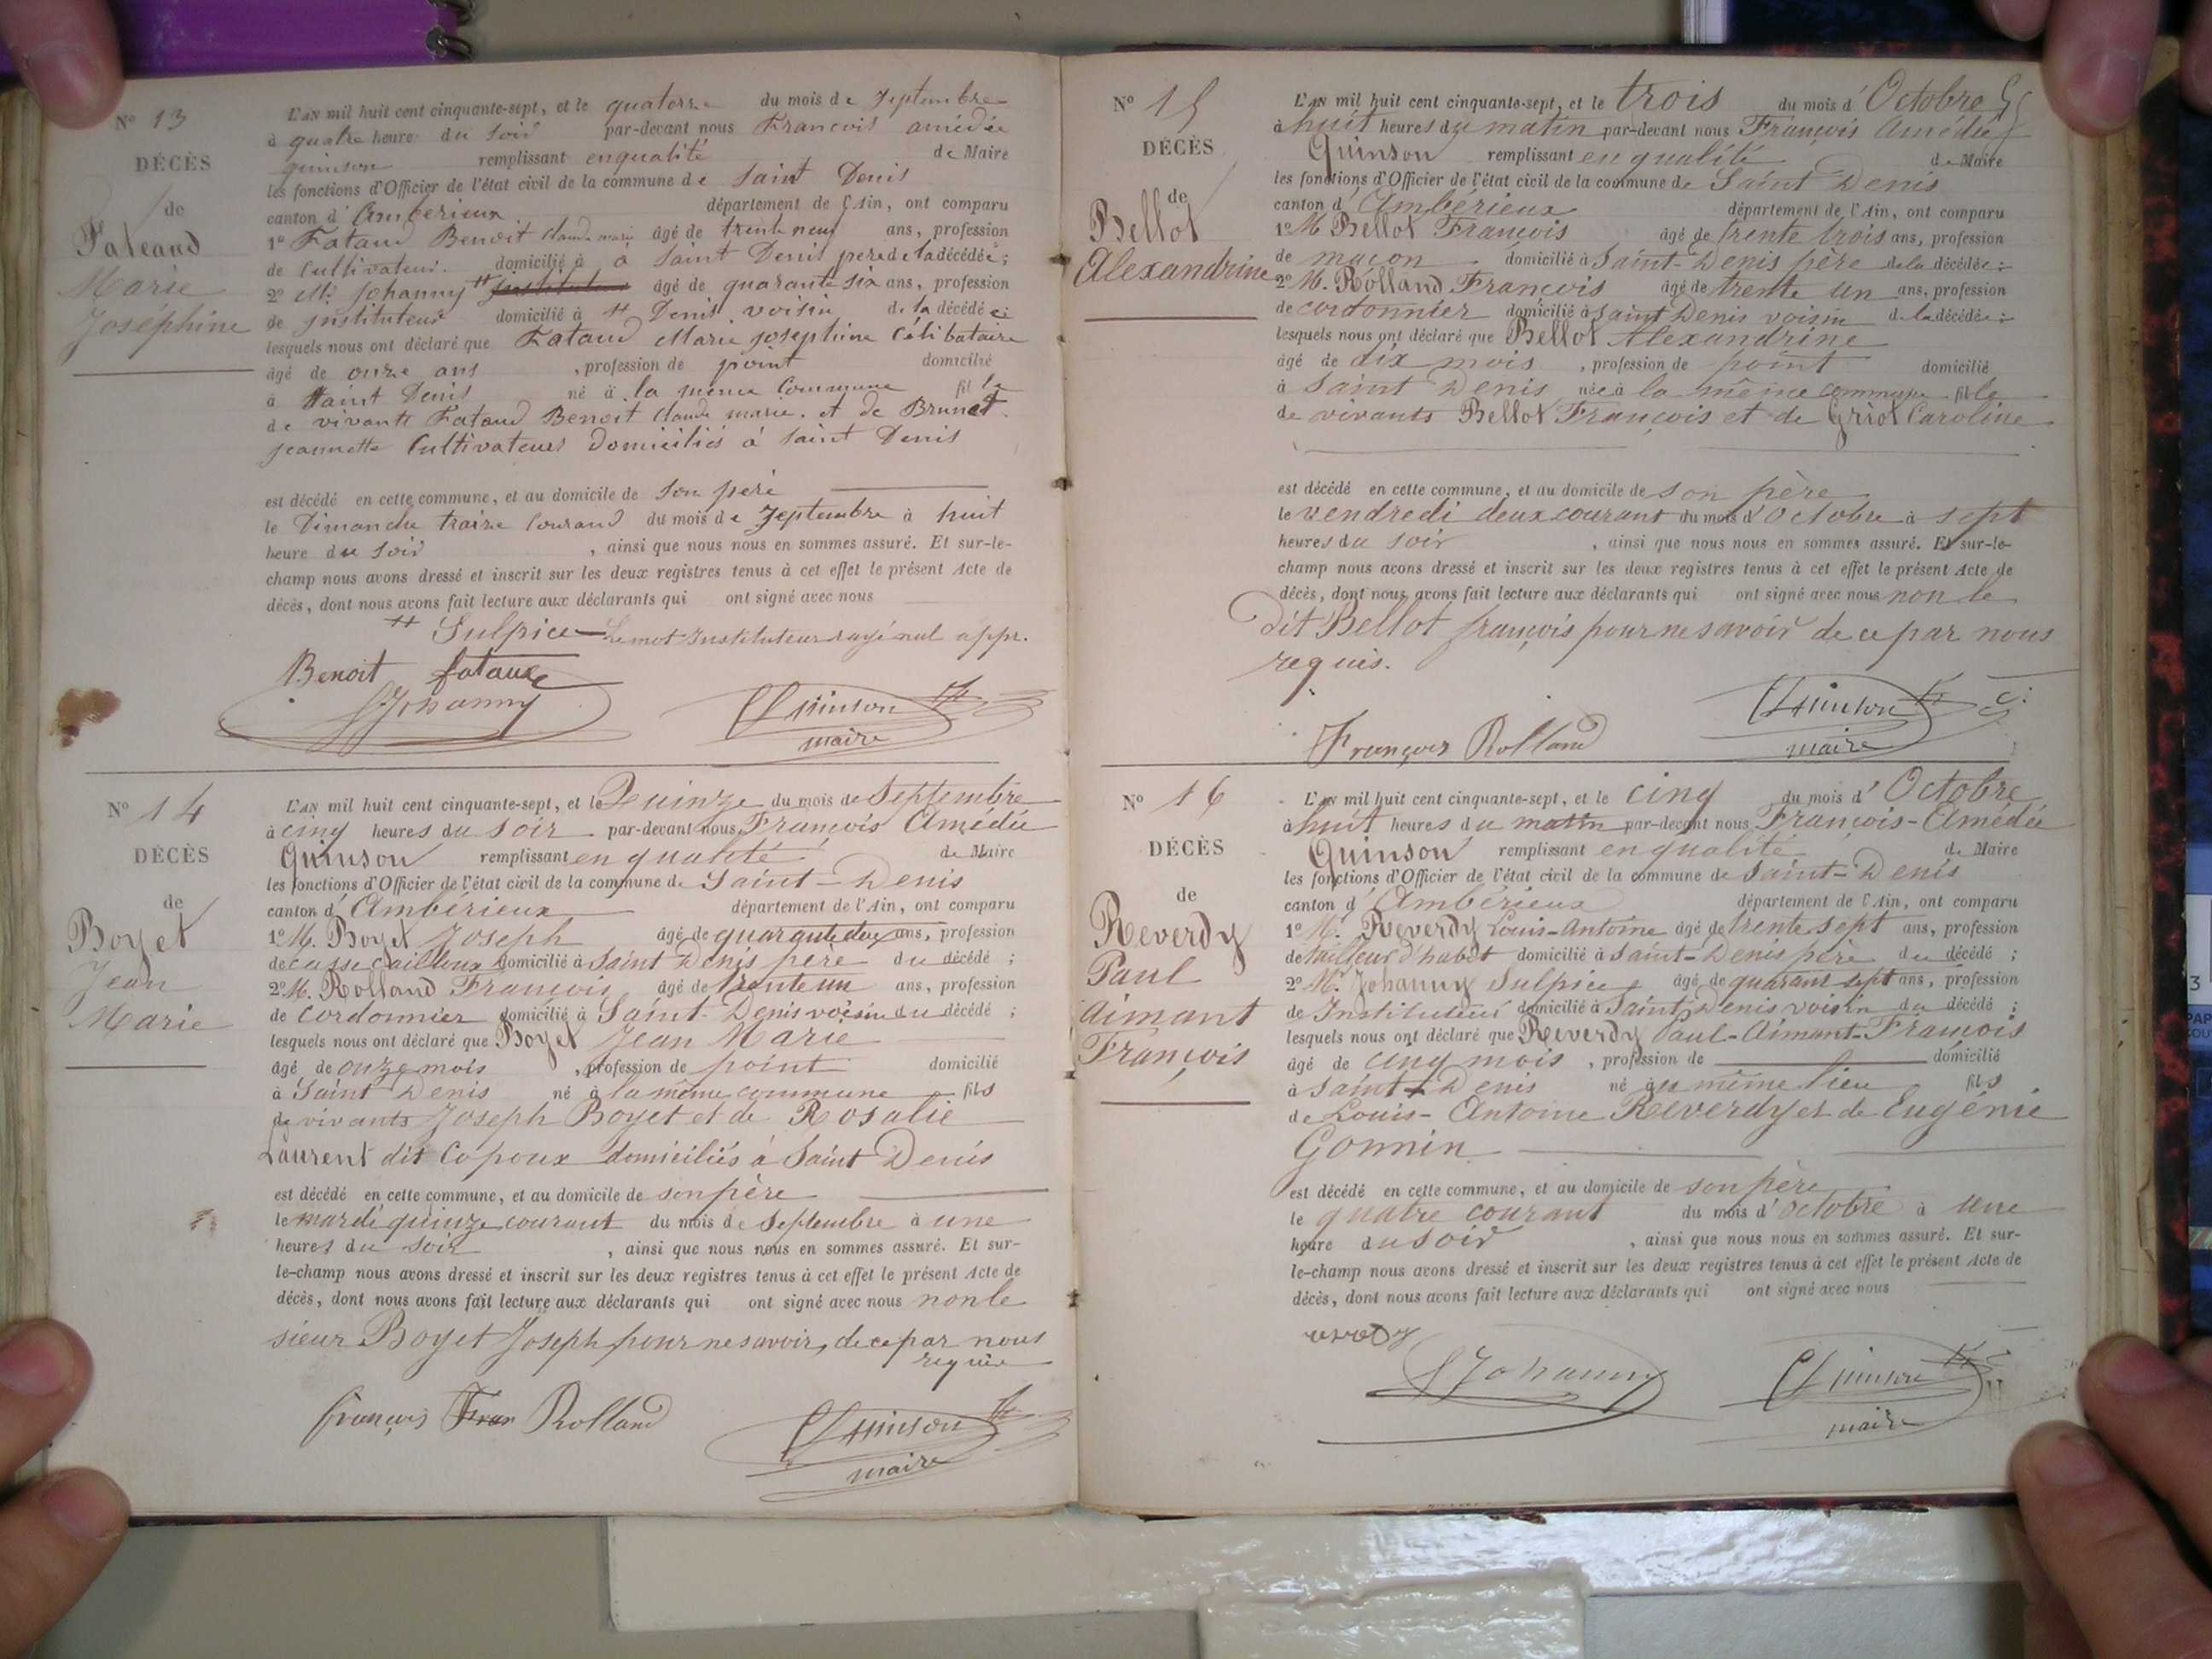 N° 13
DÉCÈS
de
Fataud
Marie
Joséphine
L'AN mil huit cent cinquante-sept, et le quatorze du mois de Septembre
à quatre heure du Soir par-devant nous François amédée
quinson remplissant en qualité de Maire
les fonctions d'Officier de l'état civil de la commune de Saint Denis
canton d'Amberieux département de l'Ain, ont comparu
1° Fataud Benoit Claude marie âgé de trente neuf ans, profession
de Cultivateur domicilié à à Saint Denis pere de la décédée ;
2° Mr Johanny # Instituteur âgé de quarante six ans, profession
de instituteur domicilié à St Denis voisin de la décédée
lesquels nous ont déclaré que Fataud Marie josephine Célibataire
âgé de onze ans , profession de point domicilié
à Saint Denis né à la meme Commune fille
de vivants Fataud Benoit Claude marie. et de Brunet
jeannette Cultivateurs Domiciliés à saint Denis
est décédé en cette commune, et au domicile de son père
le Dimanche traize Courand du mois de Septembre à huit
heure du soir , ainsi que nous nous en sommes assuré. Et sur-le-
champ nous avons dressé et inscrit sur les deux registres tenus à cet effet le présent Acte de
décès, dont nous avons fait lecture aux déclarants qui ont signé avec nous
# Sulpice — Le mot Instituteur rayé nul appr.
Benoit fataud
SJohanny
Quinson
maire
N° 14
DÉCÈS
de
Boyet
Jean
Marie
L'AN mil huit cent cinquante-sept, et le Quinze du mois de Septembre
à cinq heures du soir par-devant nous François Amédée
Quinson remplissant en qualité de Maire
les fonctions d'Officier de l'état civil de la commune de Saint-Denis
canton d'Ambérieux département de l'Ain, ont comparu
1° M. Boyet Joseph âgé de quarante deux ans, profession
de casse cailloux domicilié à Saint Denis père du décédé ;
2° M. Rolland François âgé de trente un ans, profession
de Cordonnier domicilié à Saint-Denis voisin du décédé ;
lesquels nous ont déclaré que Boyet Jean Marie
âgé de onze mois , profession de point domicilié
à Saint Denis né à la même commune fils
de vivants Joseph Boyet et de Rosalie
Laurent dit Copoux domiciliés à Saint Denis
est décédé en cette commune, et au domicile de son père
le mardi quinze courant du mois de Septembre à une
heures du soir , ainsi que nous nous en sommes assuré. Et sur-
le-champ nous avons dressé et inscrit sur les deux registres tenus à cet effet le présent Acte de
décès, dont nous avons fait lecture aux déclarants qui ont signé avec nous non le
sieur Boyet Joseph pour ne savoir, de ce par nous
requis
françois Fran Rolland
Quinson
maire
N° 15
DÉCÈS
de
Bellot
Alexandrine
L'AN mil huit cent cinquante-sept, et le trois du mois d'Octobre
à huit heures du matin par-devant nous François Amédée
Quinson remplissant en qualité de Maire
les fonctions d'Officier de l'état civil de la commune de Saint Denis
canton d'Ambérieux département de l'Ain, ont comparu
1° M Bellot François âgé de trente trois ans, profession
de maçon domicilié à Saint-Denis père de la décédée ;
2° M. Rolland François âgé de trente un ans, profession
de cordonnier domicilié à Saint Denis voisin de la décédée ;
lesquels nous ont déclaré que Bellot Alexandrine
âgé de dix mois , profession de point domicilié
à Saint Denis née à la même commune fille
de vivants Bellot François et de Griot Caroline
est décédé en cette commune, et au domicile de son père
le vendredi deux courant du mois d'Octobre à sept
heures du soir , ainsi que nous nous en sommes assuré. Et sur-le-
champ nous avons dressé et inscrit sur les deux registres tenus à cet effet le présent Acte de
décès, dont nous avons fait lecture aux déclarants qui ont signé avec nous non le
dit Bellot françois pour ne savoir de ce par nous
requis.
François Rolland
Quinson
maire
N° 16
DÉCÈS
de
Reverdy
Paul
Aimant
François
L'AN mil huit cent cinquante-sept, et le cinq du mois d'Octobre
à huit heures du matin par-devant nous François-Amédée
Quinson remplissant en qualité de Maire
les fonctions d'Officier de l'état civil de la commune de Saint-Denis
canton d'Ambérieux département de l'Ain, ont comparu
1° M. Reverdy Louis-Antoine âgé de trente sept ans, profession
de tailleur d'habit domicilié à Saint-Denis père du décédé ;
2° Mr Johanny Sulpice âgé de quarant sept ans, profession
de Instituteur domicilié à Saint Denis voisin du décédé ;
lesquels nous ont déclaré que Reverdy Paul-Aimant-François
âgé de cinq mois , profession de domicilié
à Saint-Denis né au même lieu fils
de Louis-Antoine Reverdy et de Eugénie
Gonnin
est décédé en cette commune, et au domicile de son père
le quatre courant du mois d'Octobre à une
heure du soir , ainsi que nous nous en sommes assuré. Et sur-
le-champ nous avons dressé et inscrit sur les deux registres tenus à cet effet le présent Acte de
décès, dont nous avons fait lecture aux déclarants qui ont signé avec nous
SJohanny
Quinson
maire